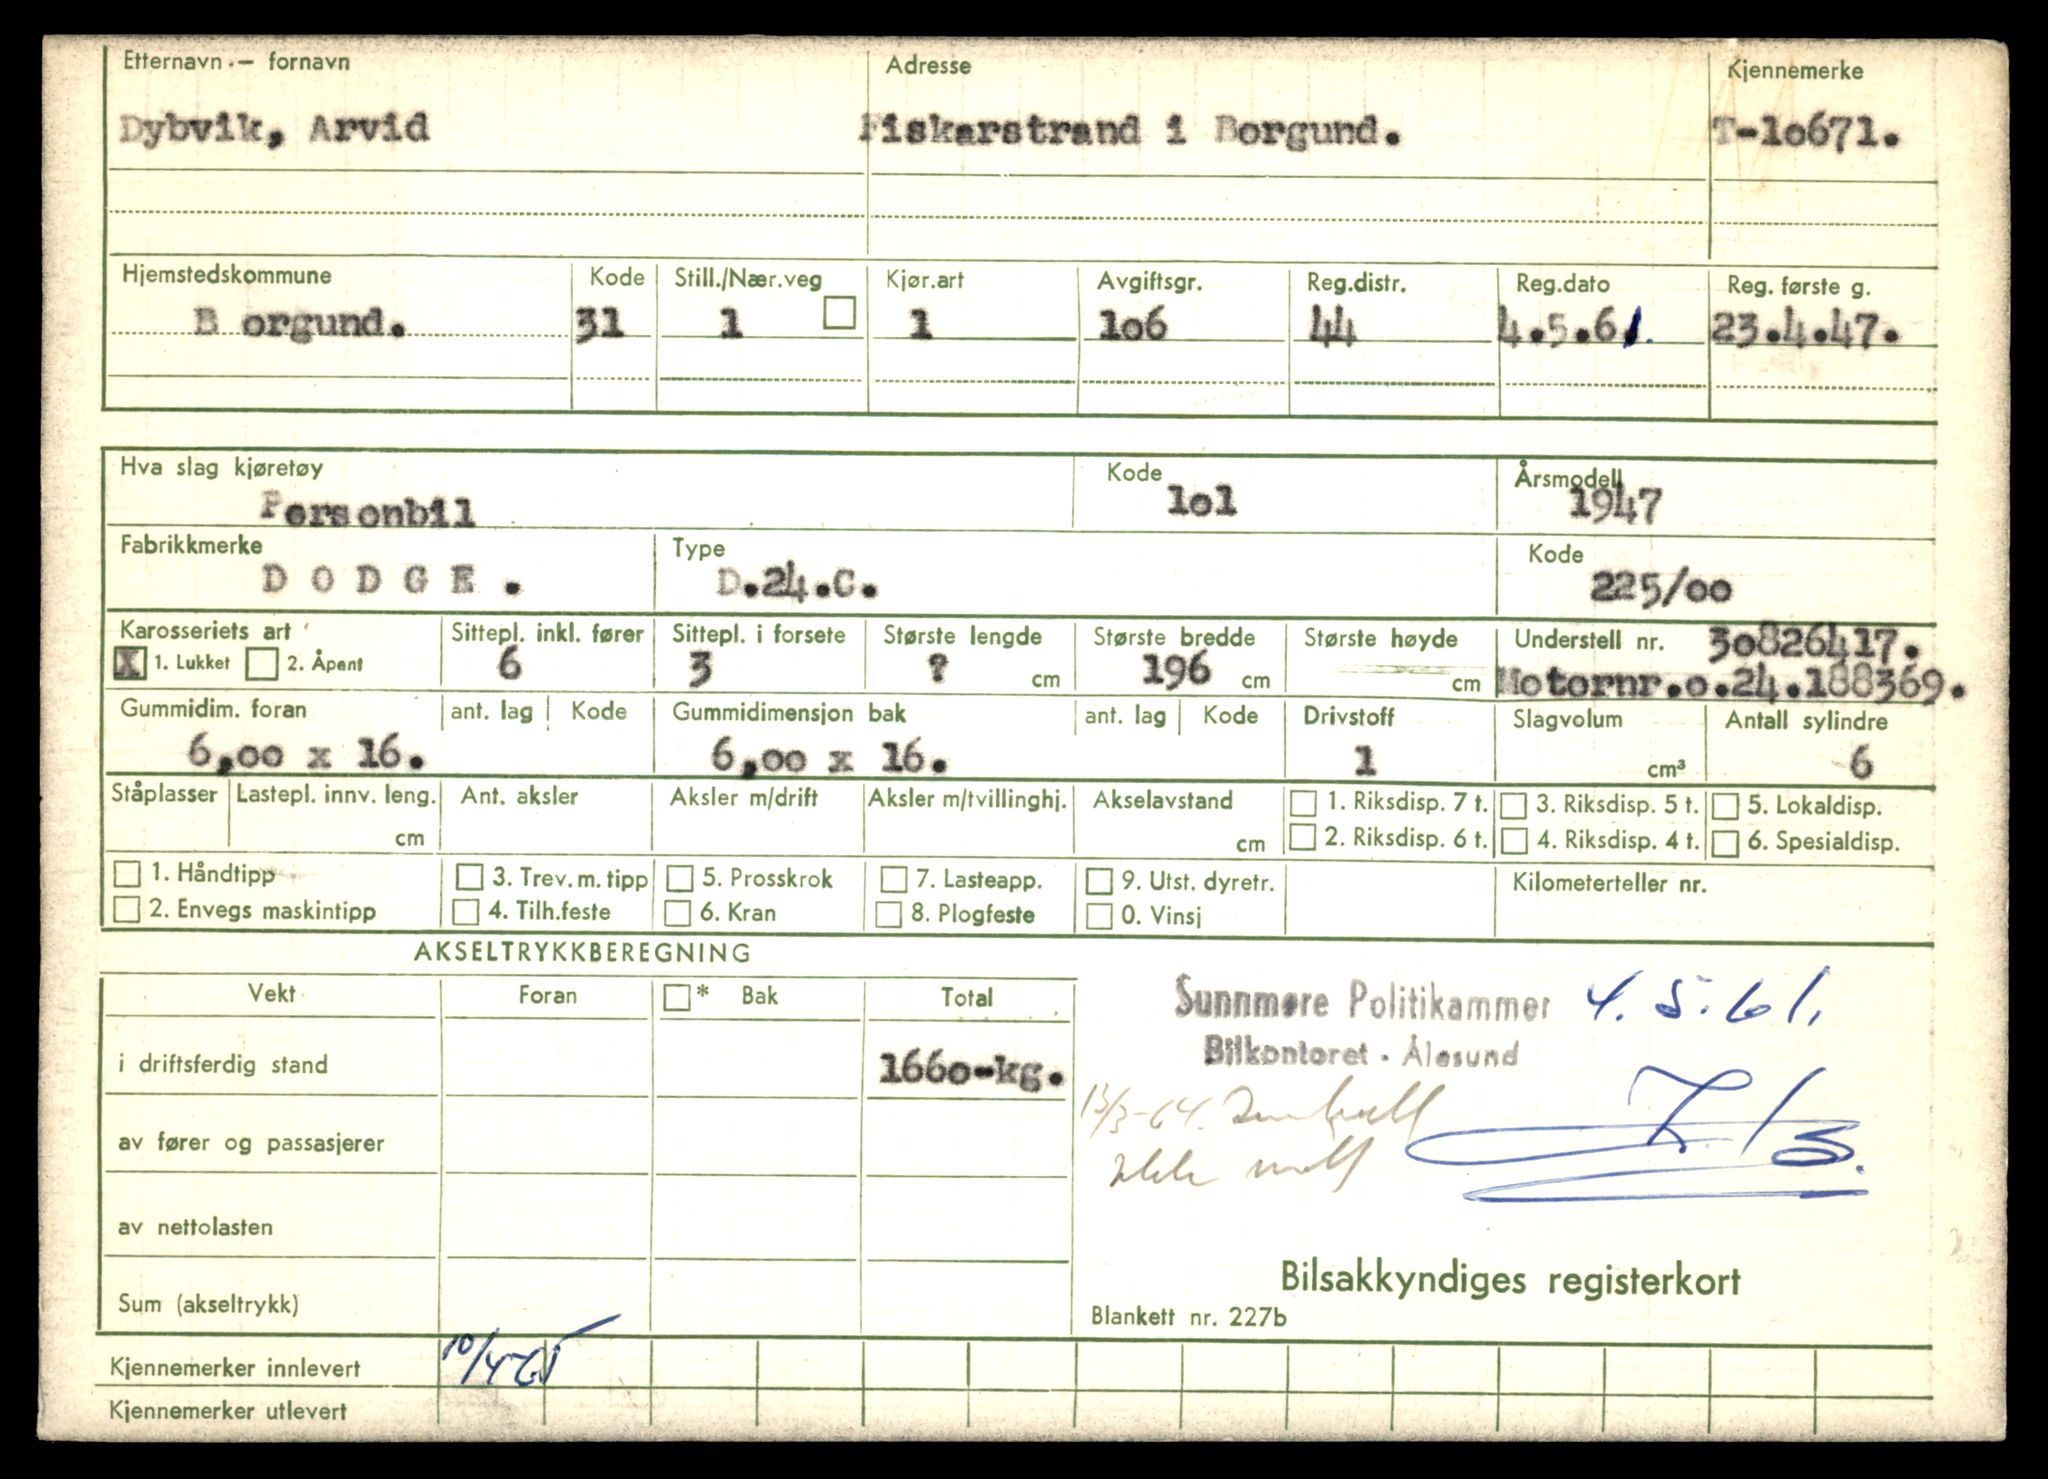 Etternavn — fornavn Adresse Kjennemerke
Dybvik, Arvid Fiskarstrand i Borgund. T-10671.
Hjemstedskommune Kode Still./Nær.veg Kjør.art Avgiftsgr. Reg.distr. Reg.dato Reg. første g.
B orgund. 31 1 1 106 44 4.5.61. 23.4.47.
Hva slag kjøretøy Kode Årsmodell
Personbil 101 1947
Fabrikkmerke Type Kode
D O D G E . D.24.C. 225/00
Karosseriets art Sittepl. inkl. fører Sittepl. i forsete Største lengde Største bredde Største høyde Understell nr. 30826417.
X 1. Lukket 2. Åpent 6 3 ? cm 196 cm cm Motornr.o.24.188369.
Gummidim. foran ant. lag Kode Gummidimensjon bak ant. lag Kode Drivstoff Slagvolum Antall sylindre
6,00 x 16. 6,00 x 16. 1 cm³ 6
Ståplasser Lastepl. innv. leng. Ant. aksler Aksler m/drift Aksler m/tvillinghj. Akselavstand 1. Riksdisp. 7 t. 3. Riksdisp. 5 t. 5. Lokaldisp.
cm cm 2. Riksdisp. 6 t. 4. Riksdisp. 4 t. 6. Spesialdisp.
1. Håndtipp 3. Trev. m. tipp 5. Prosskrok 7. Lasteapp. 9. Utst. dyretr. Kilometerteller nr.
2. Envegs maskintipp 4. Tilh.feste 6. Kran 8. Plogfeste 0. Vinsj
AKSELTRYKKBEREGNING
Vekt Foran * Bak Total Sunnmøre Politikammer 4.5.61.
i driftsferdig stand 1660-kg. Bilkontoret . Ålesund
13/3-64.
av fører og passasjerer
av nettolasten
Bilsakkyndiges registerkort
Sum (akseltrykk) Blankett nr. 227b
Kjennemerker innlevert 10/4-65
Kjennemerker utlevert